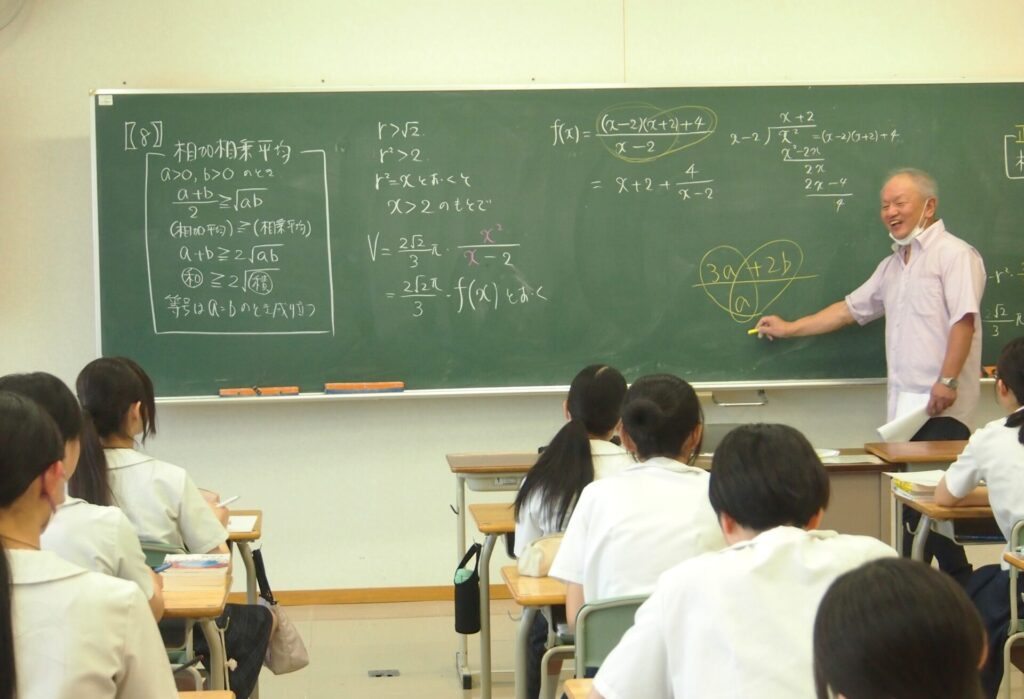 【8】
相加相乗平均
a>0, b>0 のとき
a+b/2 ≧ √ab
(相加平均) ≧ (相乗平均)
a+b ≧ 2√ab
和 ≧ 2√積
等号は a=b のとき成り立つ
r>√2.
r²>2.
r²=x とおくと
x>2 のもとで
V= 2√2/3 π · x²/x-2
= 2√2π/3 · f(x) とおく
f(x)= (x-2)(x+2)+4/x-2
= x+2+ 4/x-2
x+2
x-2 ) x² =(x-2)(x+2)+4.
x²-2x
2x
2x-4
4
3a+2b
a
2√2/3 π